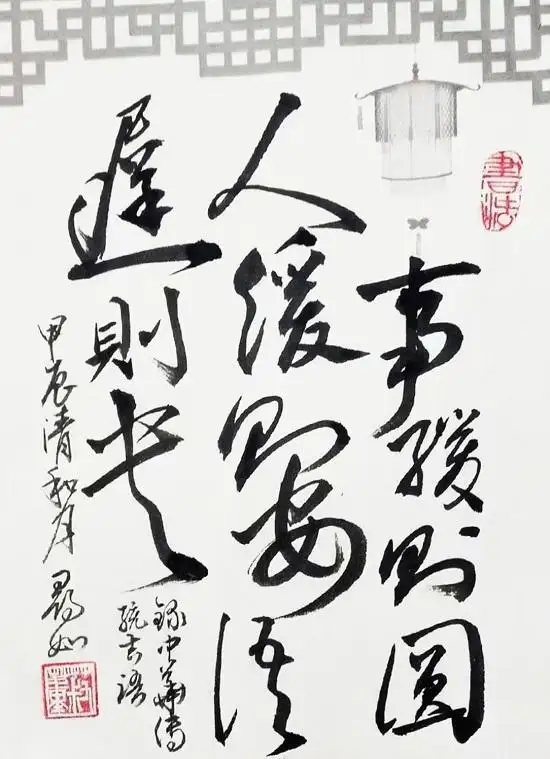 書法
事緩則圓
人緩則安語
遲則貴
錄中華傳
統古語
甲辰清和月 如